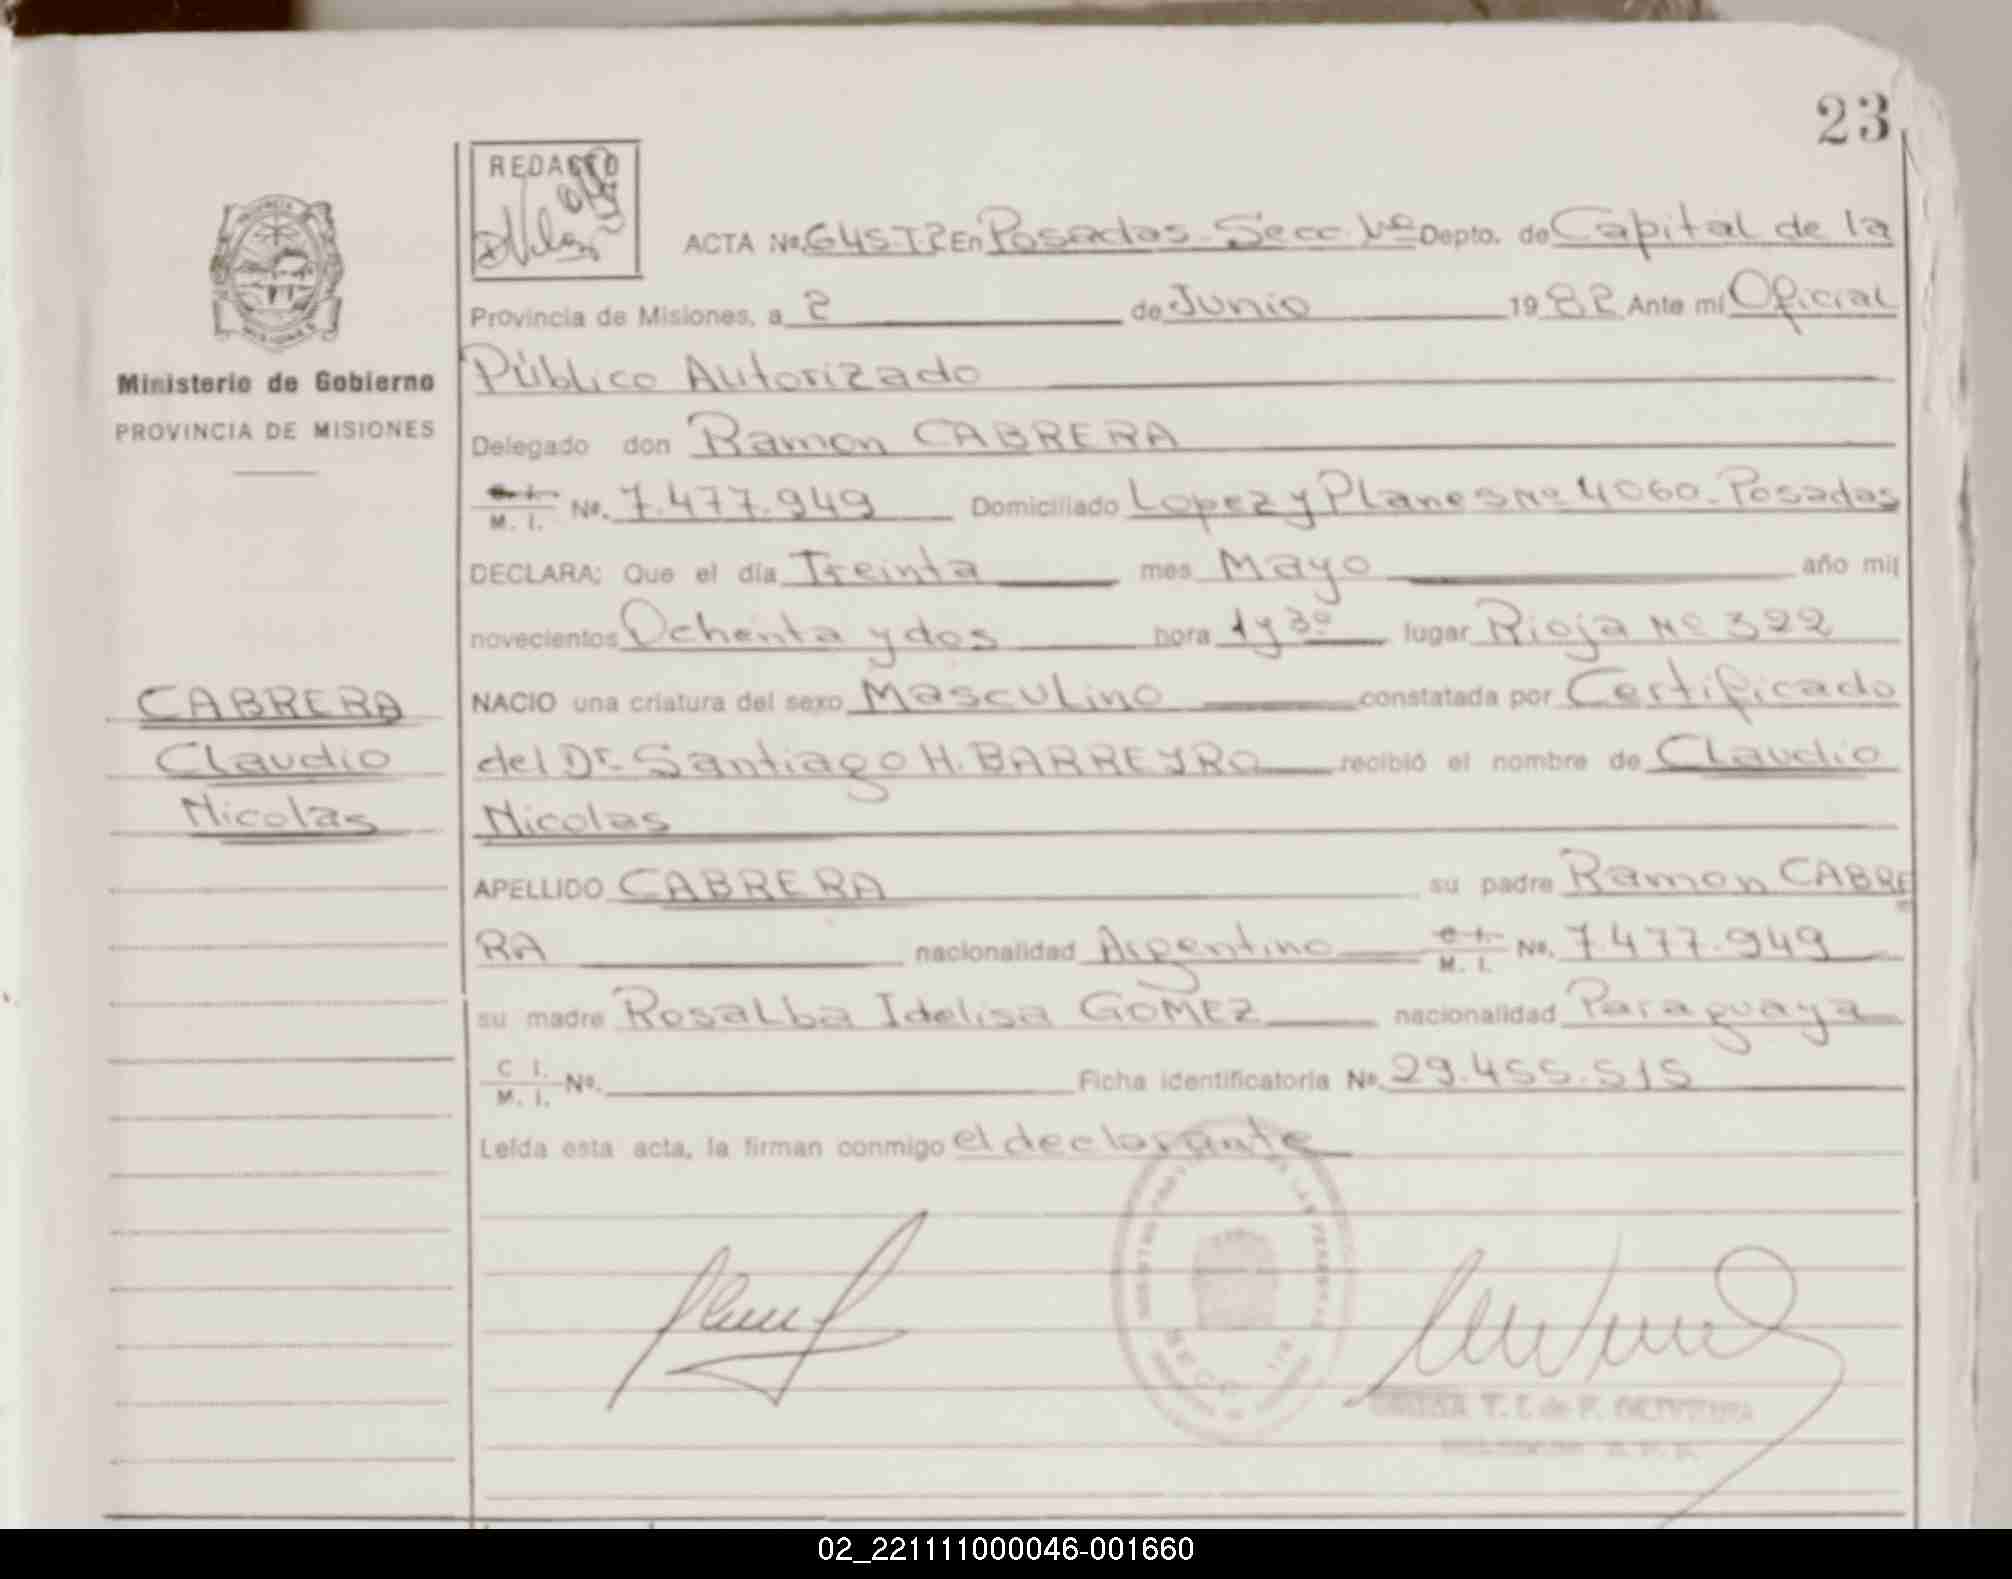 23
REDACTO
ACTA No. 645 T2 En Posadas Secc. 1ª Depto. de Capital de la
Provincia de Misiones, a 2 de Junio 1982 Ante mí Oficial
Ministerio de Gobierno
PROVINCIA DE MISIONES
Público Autorizado
Delegado don Ramon CABRERA
M. I. No. 7.477.949 Domiciliado Lopez y Planes Nº 4060 - Posadas
DECLARA: Que el día Treinta mes Mayo año mil
novecientos Ochenta y dos hora 1 y 30 lugar Rioja Nº 322
CABRERA
Claudio
Nicolas
NACIO una criatura del sexo Masculino constatada por Certificado
del Dr. Santiago H. BARREYRO recibió el nombre de Claudio
Nicolas
APELLIDO CABRERA su padre Ramon CABRE
RA nacionalidad Argentino C. I. M. I. No. 7.477.949
su madre Rosalba Idelisa GOMEZ nacionalidad Paraguaya
C. I. M. I. No. Ficha identificatoria No. 29.455.515
Leída esta acta, la firman conmigo el declarante
02_221111000046-001660